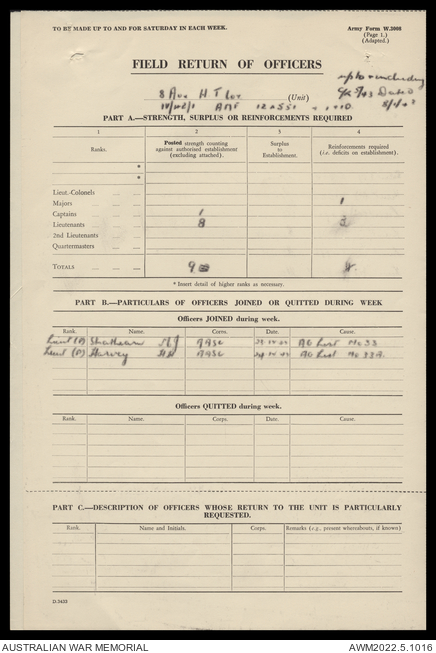 TO BE MADE UP TO AND FOR SATURDAY IN EACH WEEK.
Army Form W.3008
(Page 1.)
(Adapted.)
FIELD RETURN OF OFFICERS
up to & including
8 Aus H T Coy (Unit)
AMF
PART A.—STRENGTH, SURPLUS OR REINFORCEMENTS REQUIRED
1 2 3 4
Ranks. Posted strength counting against authorised establishment (excluding attached). Surplus to Establishment. Reinforcements required (i.e. deficits on establishment).
*
*
Lieut.-Colonels
Majors 1
Captains 1
Lieutenants 8 3
2nd Lieutenants
Quartermasters
TOTALS 9
* Insert detail of higher ranks as necessary.
PART B.—PARTICULARS OF OFFICERS JOINED OR QUITTED DURING WEEK
Officers JOINED during week.
Rank. Name. Corps. Date. Cause.
Lieut (P) AASC RO List No 33
Lieut (P) Harvey AASC RO List No 33A.
Officers QUITTED during week.
Rank. Name. Corps. Date. Cause.
PART C.—DESCRIPTION OF OFFICERS WHOSE RETURN TO THE UNIT IS PARTICULARLY
REQUESTED.
Rank. Name and Initials. Corps. Remarks (e.g., present whereabouts, if known)
D.5425
AUSTRALIAN WAR MEMORIAL
AWM2022.5.1016